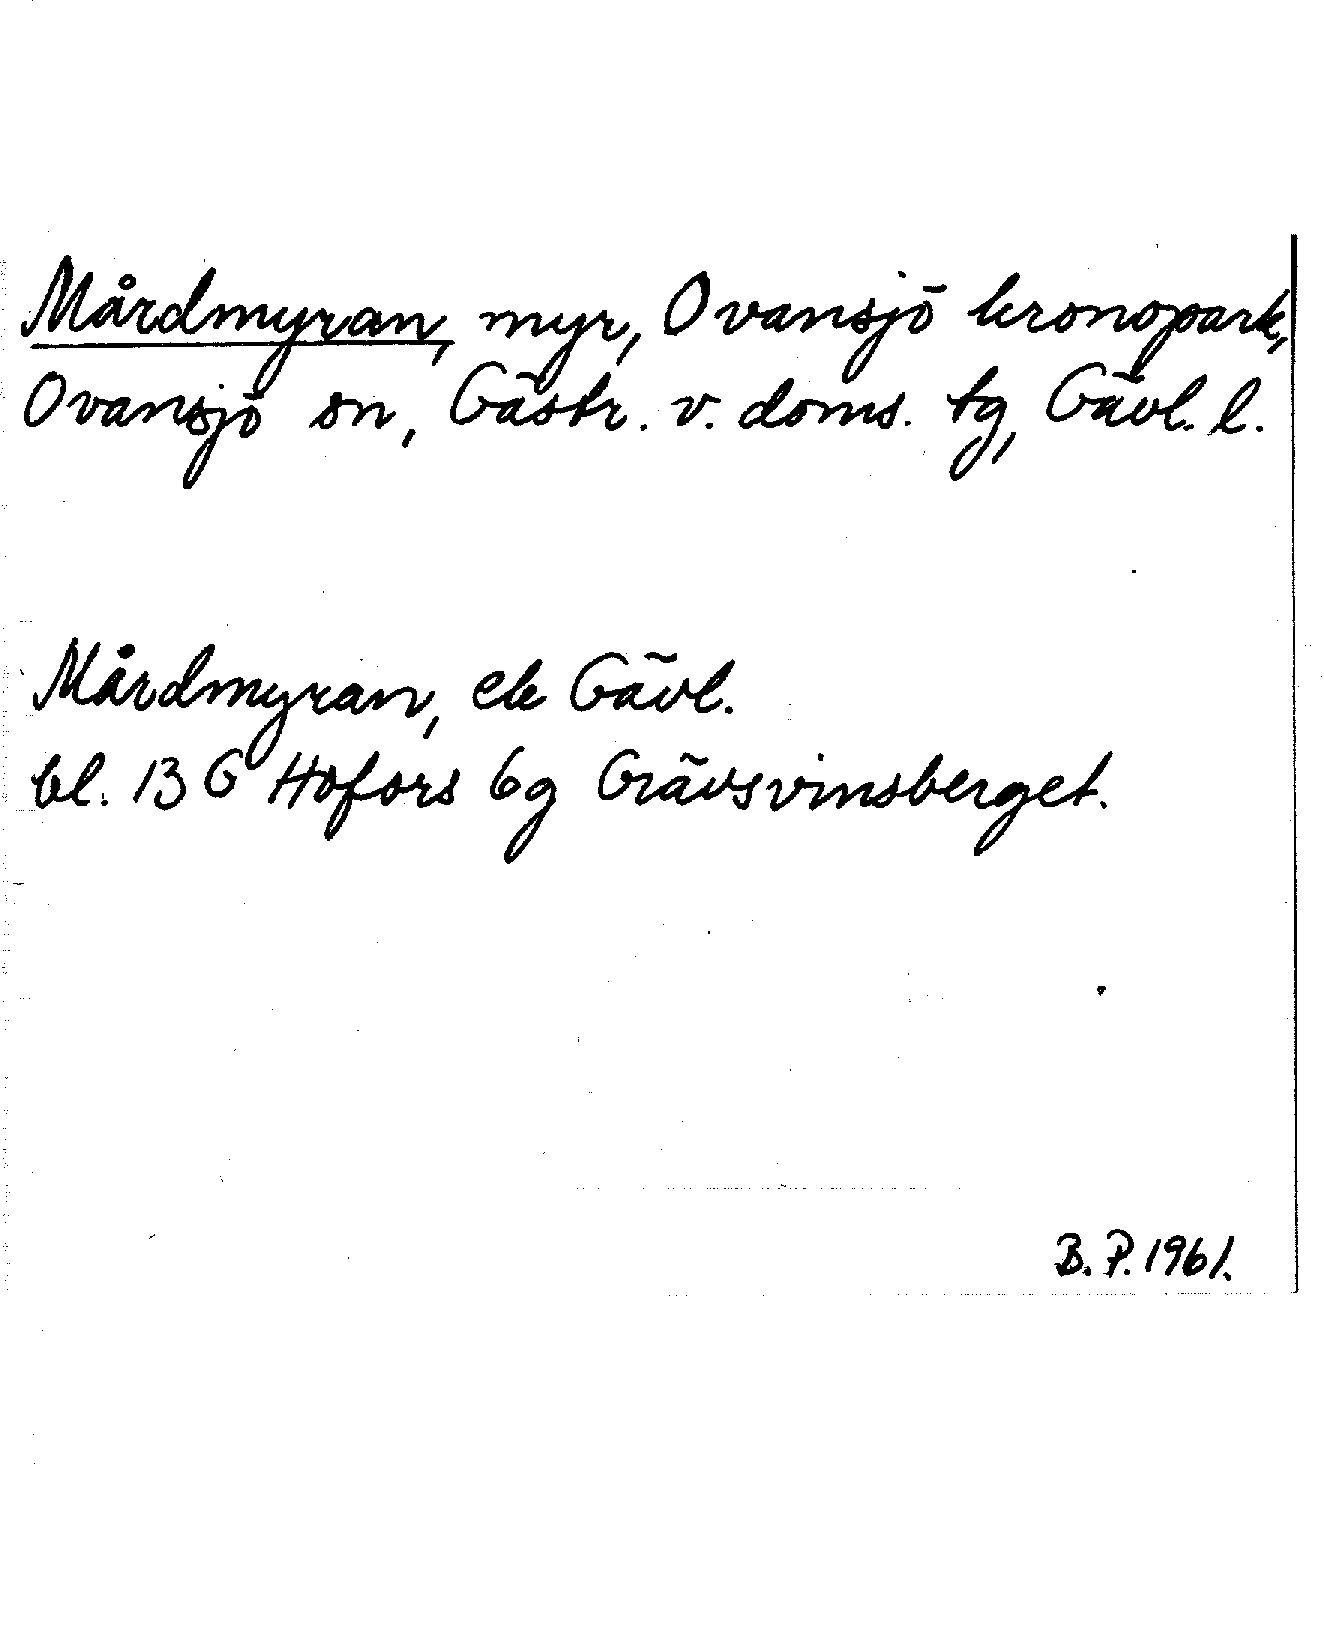 Mårdmyran, myr, Ovansjö kronopark,
Ovansjö sn, Gästr. v. doms. tg, Gävl. l.
Mårdmyran, ek Gävl.
bl. 13 G Hofors 6g Grävsvinsberget.
B. P. 1961.